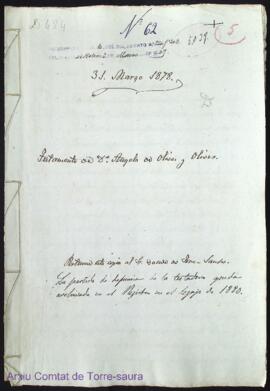 Nº 62
5
31. Marzo 1878.
Testamento de Dª Angela de Olives y Olives.
Retirese esta copia al S. Conde de Torre-Saura.
La partida de defuncion de la testadora queda
archivada en el Registro en el legajo de 1880.
Arxiu Comtat de Torre-saura